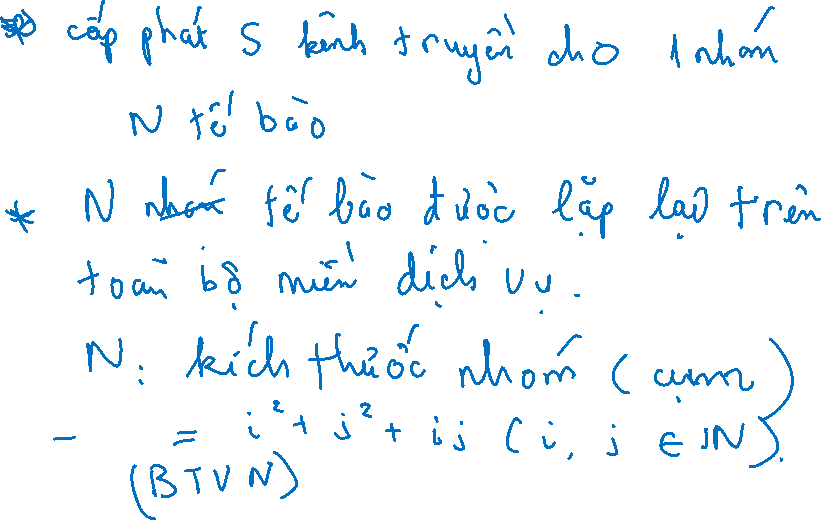 * cấp phát S kênh truyền cho 1 nhóm
N tế bào
* N tế bào được lặp lại trên
toàn bộ miền dịch vụ.
N: kích thước nhóm (cụm)
- = i² + j² + ij (i, j ∈ ℕ).
(BTVN)